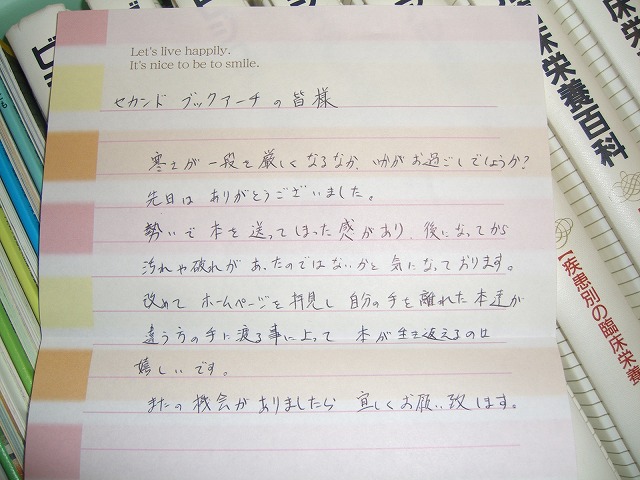 Let's live happily.
It's nice to be to smile.
セカンド ブックアーチの皆様
寒さが一段と厳しくなるなか、いかがお過ごしでしょうか?
先日は ありがとうございました。
勢いで本を送ってしまった感があり、後になってから
汚れや破れがあったのではないかと気になっております。
改めて ホームページを拝見し 自分の手を離れた本達が
違う方の手に渡る事に上って 本が生き返えるのは
嬉しいです。
またの機会がありましたら 宜しくお願い致します。
ビ
床栄養百科
床栄
【疾患別の臨床栄養